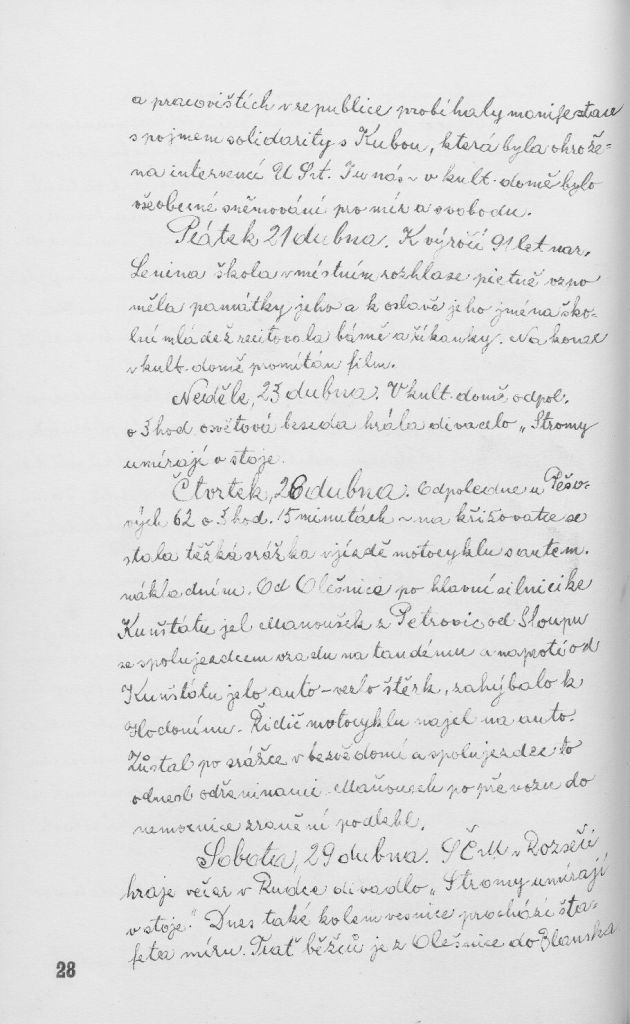 a pracovištích v republice probíhaly manifestace
s pojmem solidarity s Kubou, která byla ohrože=
na intervencí U St. I u nás v kult. domě bylo
všeobecné sněmování pro mír a svobodu.
Pátek 21 dubna. K výročí 91 let nar.
Lenina škola v místním rozhlase pietně vzpo
měla památky jeho a k oslavě jeho jména ško-
lní mládež recitovala básně a říkanky. Na konec
v kult. domě promítán film.
Neděle, 23 dubna. V kult. domě odpol.
o 3 hod osvětová beseda hrála divadlo „Stromy
umírají v stoje.
Čtvrtek, 26 dubna. Odpoledne u Pěšo-
vých 62 o 3 hod. 15 minutách – na křižovatce se
stala těžká srážka v jízdě motocyklu s autem.
nákladním. Od Olešnice po hlavní silnici ke
Kunštátu jel Maňoušek z Petrovic od Sloupu
se spolujezdcem vzadu na tandému a naproti od
Kunštátu jelo auto – vezlo štěrk, zahýbalo k
Hodonínu. Řidič motocyklu najel na auto.
Zůstal po srážce v bezvědomí a spolujezdec to
odnesl odřeninami. Maňousek po převozu do
nemocnice zranění podlehl.
Sobota, 29 dubna. SČM v Rozseči
hraje večer v Rudce divadlo „Stromy umírají
v stoje." Dnes také kolem vesnice prochází šta-
feta míru. Trať běžců je z Olešnice do Blanska
28